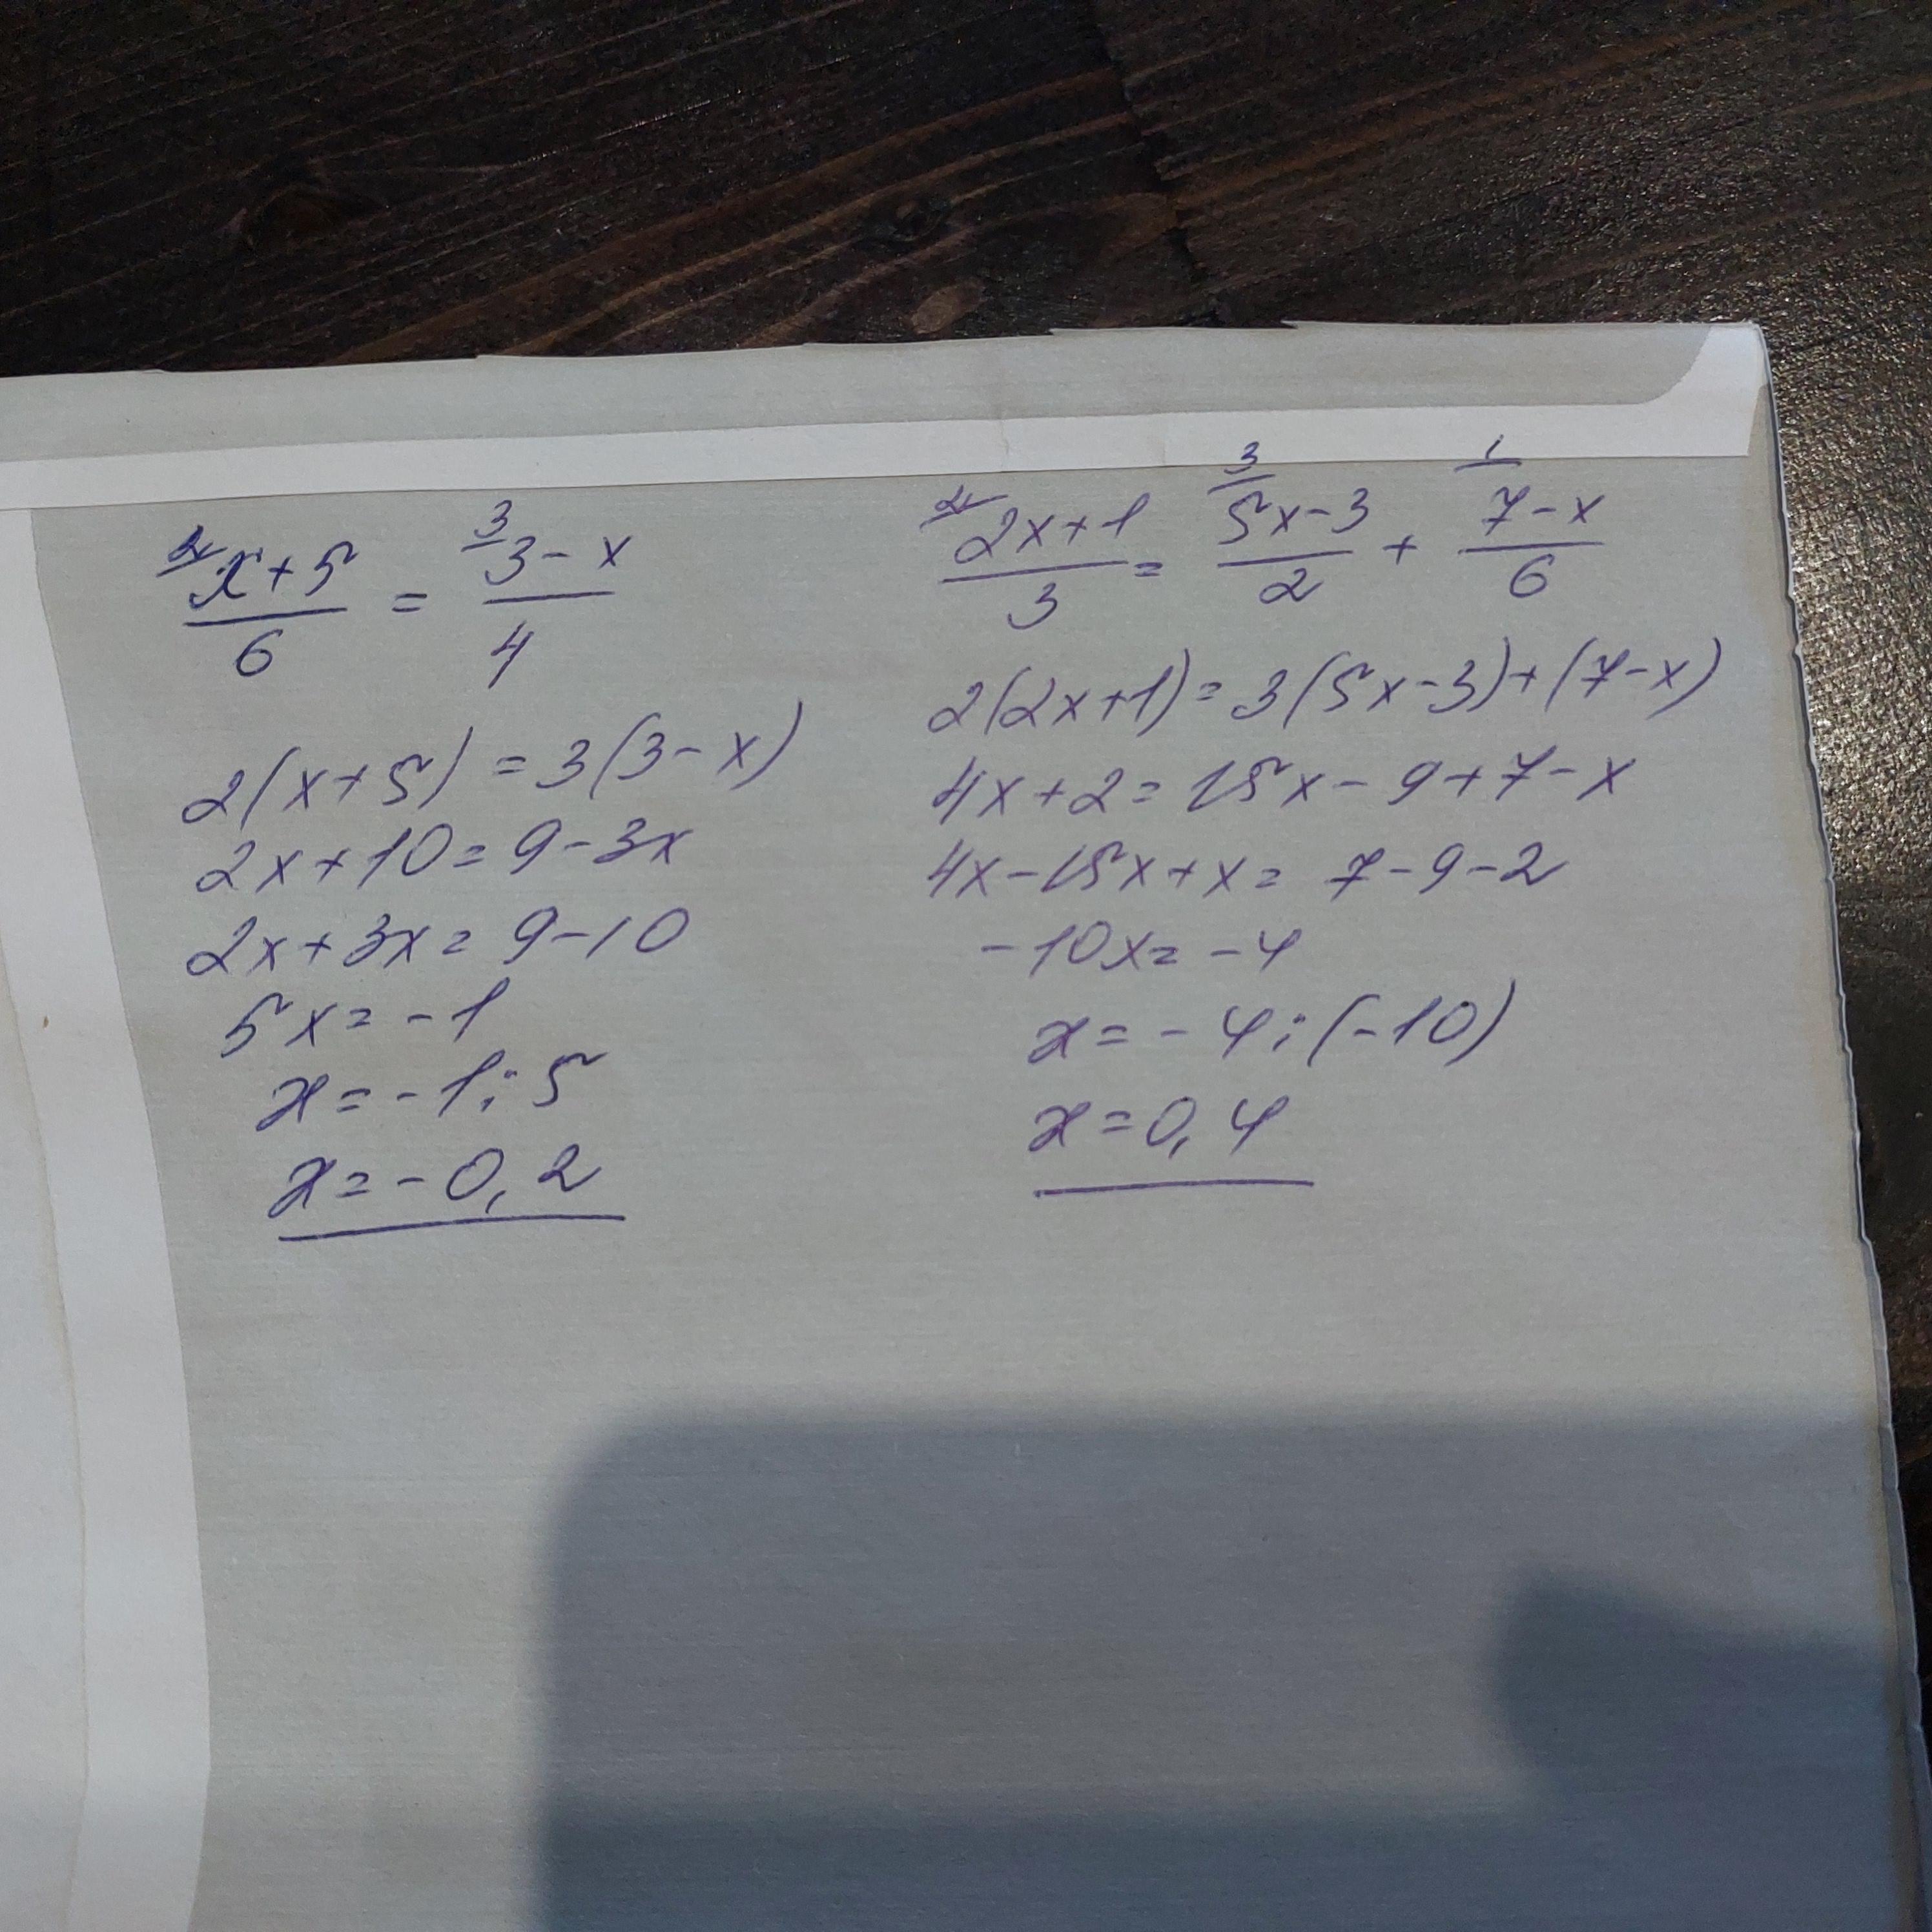 2 x+5/6 = 3 3-x/4
2(x+5) = 3(3-x)
2x+10=9-3x
2x+3x=9-10
5x=-1
x=-1:5
x=-0,2
2 2x+1/3 = 3 5x-3/2 + 1 7-x/6
2(2x+1)=3(5x-3)+(7-x)
4x+2=15x-9+7-x
4x-15x+x=7-9-2
-10x=-4
x=-4:(-10)
x=0,4